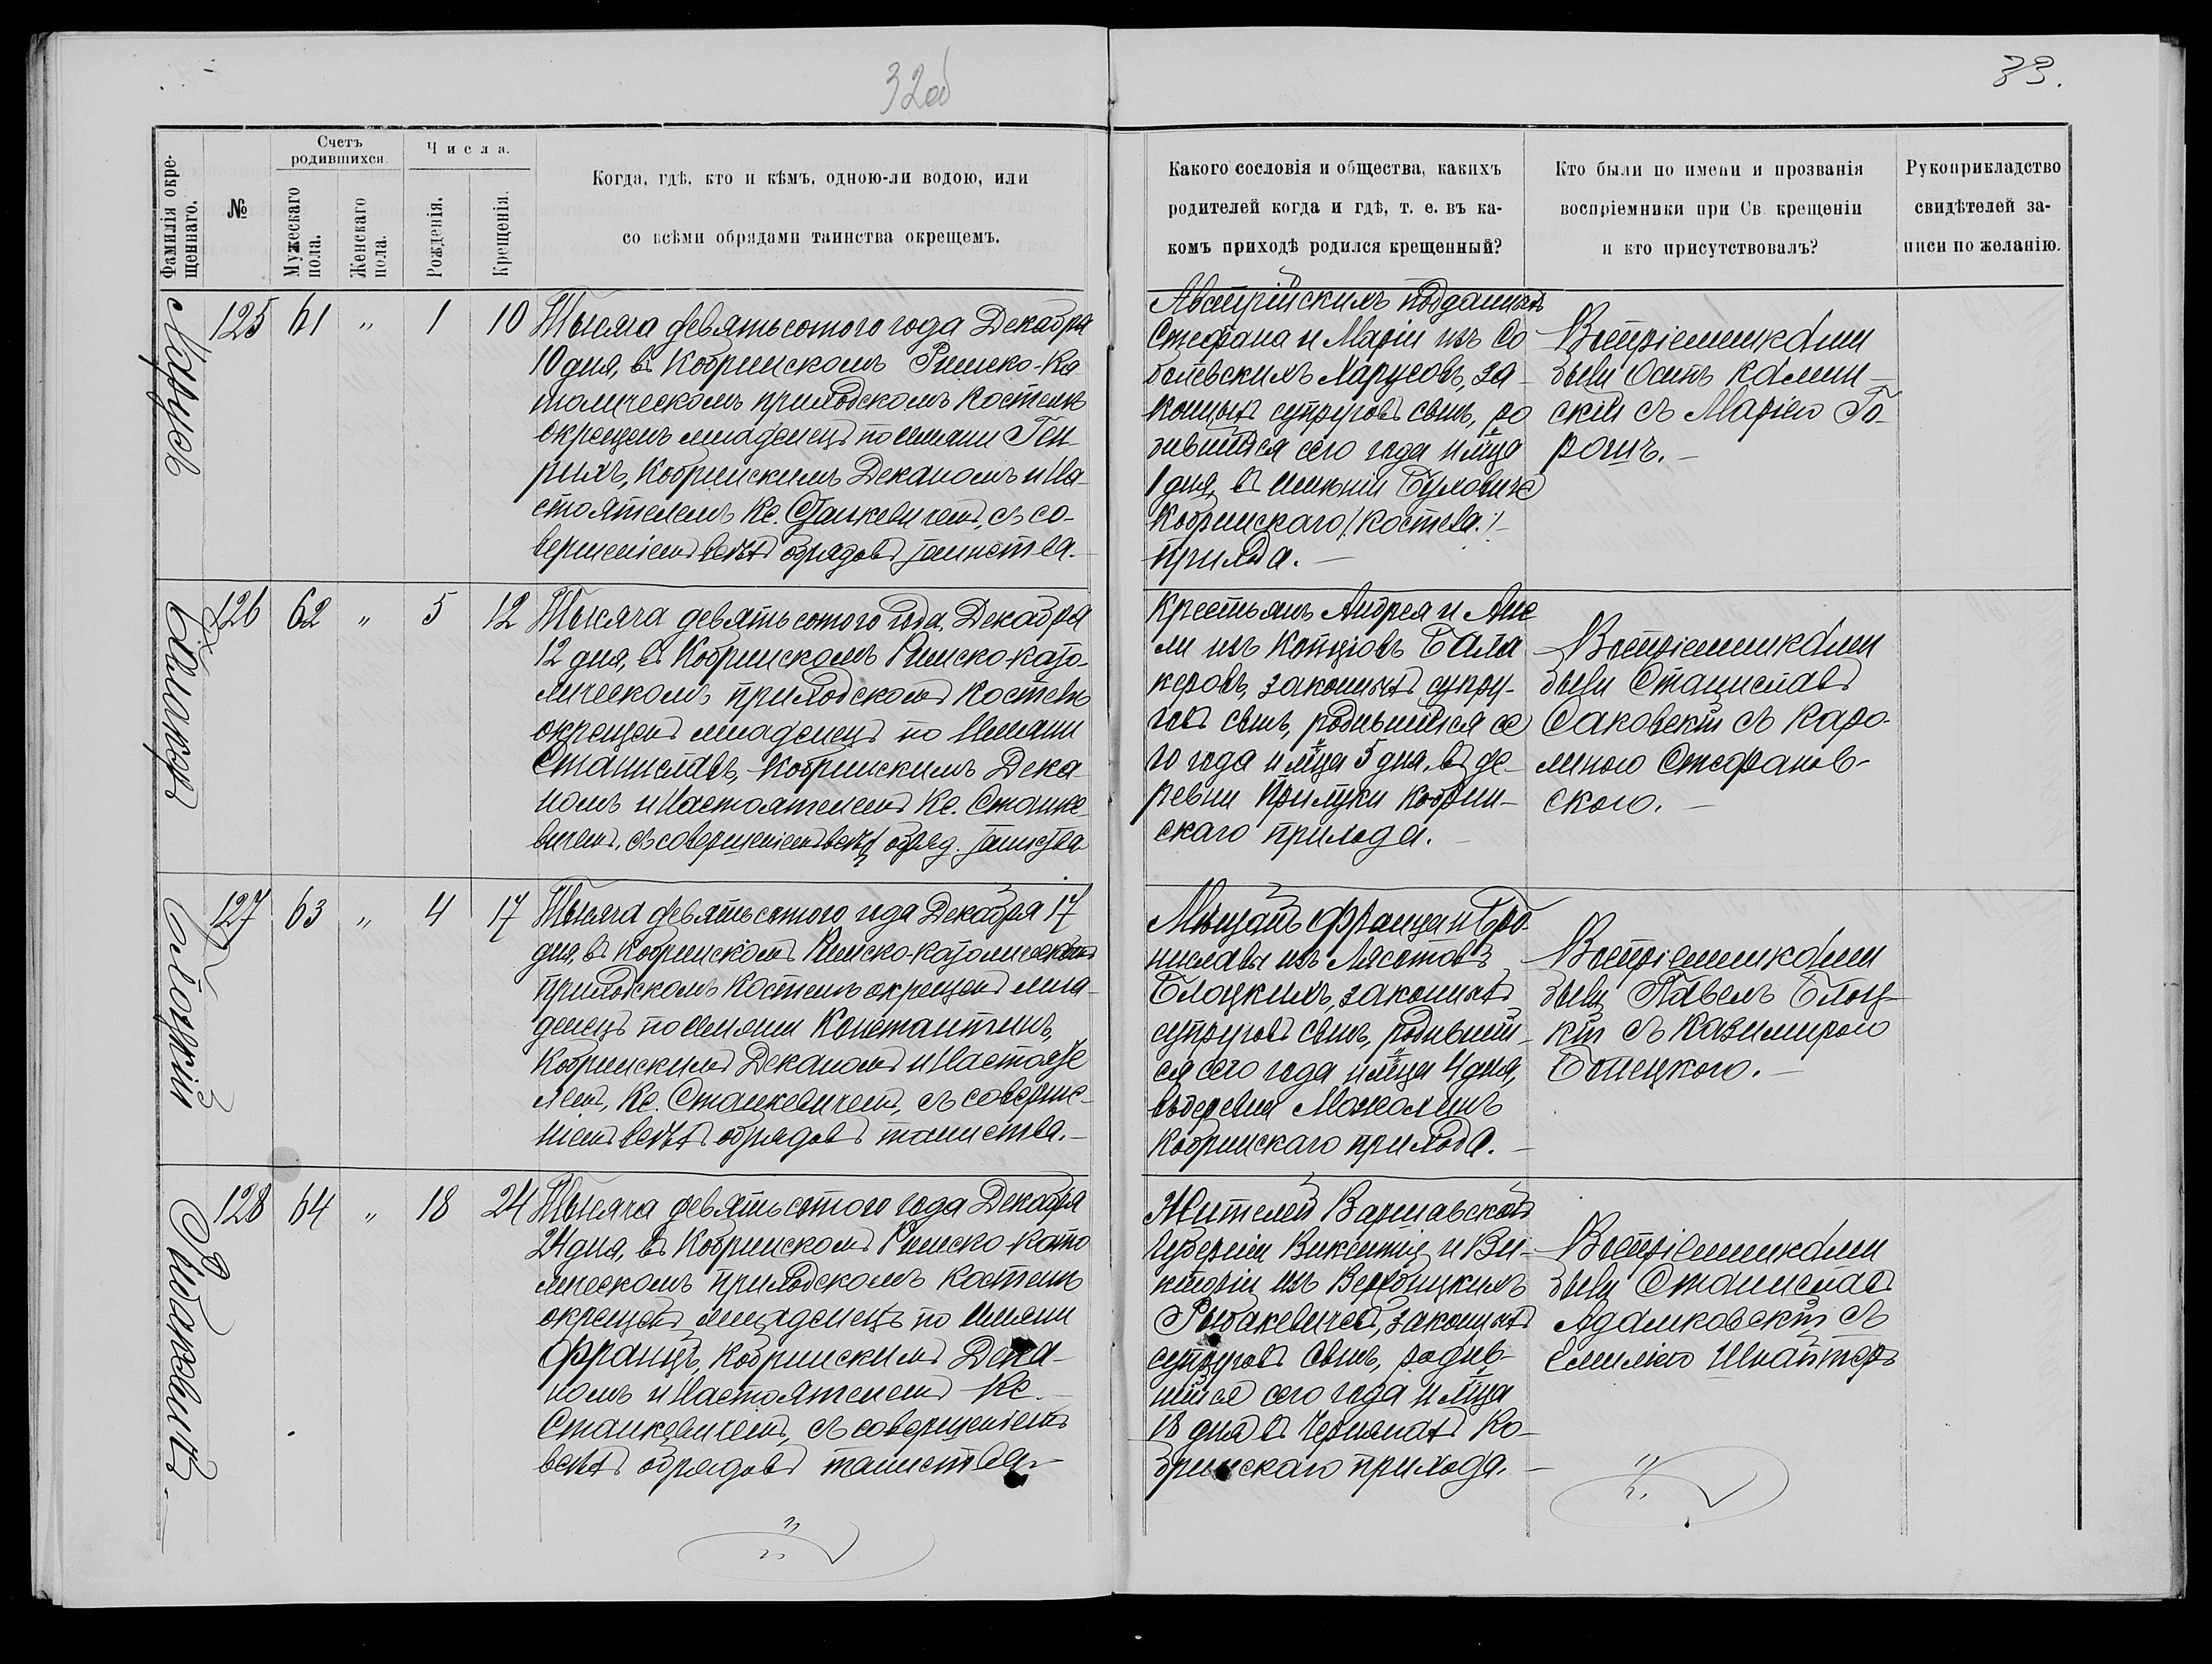 32об
33.
Фамилія окре-
щеннаго.
№
Счетъ
родившихся.
Мужескаго
пола.
Женскаго
пола.
Числа.
Рожденія.
Крещенія.
Когда, гдѣ, кто и кѣмъ, одною-ли водою, или
со всѣми обрядами таинства окрещемъ.
Какого сословія и общества, какихъ
родителей когда и гдѣ, т. е. въ ка-
комъ приходѣ родился крещенный?
Кто были по имени и прозванія
воспріемники при Св. крещеніи
и кто присутствовалъ?
Рукоприкладство
свидѣтелей за-
писи по желанію.
125 61 " 1 10
Тысяча девятьсотого года Декабря
10 дня, въ Кобринскомъ Римско-Ка
толическомъ приходскомъ Костелѣ
окрещенъ младенецъ по имени Ген-
рихъ, Кобринскимъ Деканомъ и На-
стоятелемъ Кс. Станкевичемъ, съ со-
вершеніемъ всѣхъ обрядовъ таинства.
Австрійскихъ подданныхъ
Стефана и Маріи изъ Со
болевскихъ Марусовъ, за-
конныхъ супруговъ сынъ, ро
дившійся сего года и м-ца
1 дня, въ имѣніи
Кобринскаго /: Костела :/
прихода.
Воспріемниками
были Осипъ Камин-
скій съ Маріею Го-
рошъ.
Балакеръ
126 62 " 5 12
Тысяча девятьсотого года, Декабря
12 дня, въ Кобринскомъ Римско-като-
лическомъ приходскомъ Костелѣ
окрещенъ младенецъ по имени
Станиславъ, Кобринскимъ Дека-
номъ и Настоятелемъ Кс. Станке-
вичемъ, съ совершеніемъ всѣхъ обряд. таинства
Крестьянъ Андрея и Ане
ли изъ Копціовъ Бала
керовъ, законныхъ супру-
говъ сынъ, родившійся се
го года и м-ца 5 дня, въ де-
ревни Прилуки Кобрин-
скаго прихода.
Воспріемниками
были Станиславъ
Саковскій съ Каро-
линою Стефанов-
скою.
Блоцкій
127 63 " 4 17
Тысяча девятьсотого года Декабря 17
дня, въ Кобринскомъ Римско-католическомъ
приходскомъ Костелѣ окрещенъ мла-
денецъ по имени Константинъ,
Кобринскимъ Деканомъ и Настояте
лемъ, Кс. Станкевичемъ, съ соверше-
ніемъ всѣхъ обрядовъ таинства.
Мѣщанъ Франца и Бро-
ниславы изъ Лясотовъ
Блоцкихъ, законныхъ
супруговъ сынъ, родившій-
ся сего года и м-ца 4 дня,
въ деревни
Кобринскаго прихода.
Воспріемниками
были Павелъ Блоц-
кій съ Казимирою
Блоцкою.
Рыбакевичъ.
128 64 " 18 24
Тысяча девятьсотого года Декабря
24 дня, въ Кобринскомъ Римско-като
лическомъ приходскомъ Костелѣ
окрещенъ младенецъ по имени
Францъ, Кобринскимъ Дека-
номъ и Настоятелемъ Кс.
Станкевичемъ, съ совершеніемъ
всѣхъ обрядовъ таинства.
Жителей Варшавской
губерніи Викентія и Ви-
кторіи изъ Вербицкихъ
Рыбакевичей, законныхъ
супруговъ сынъ, родив-
шійся сего года и м-ца
18 дня въ Чернянахъ Ко-
бринскаго прихода.
Воспріемниками
были Станиславъ
Адамковскій съ
Емиліею Шнайтеръ